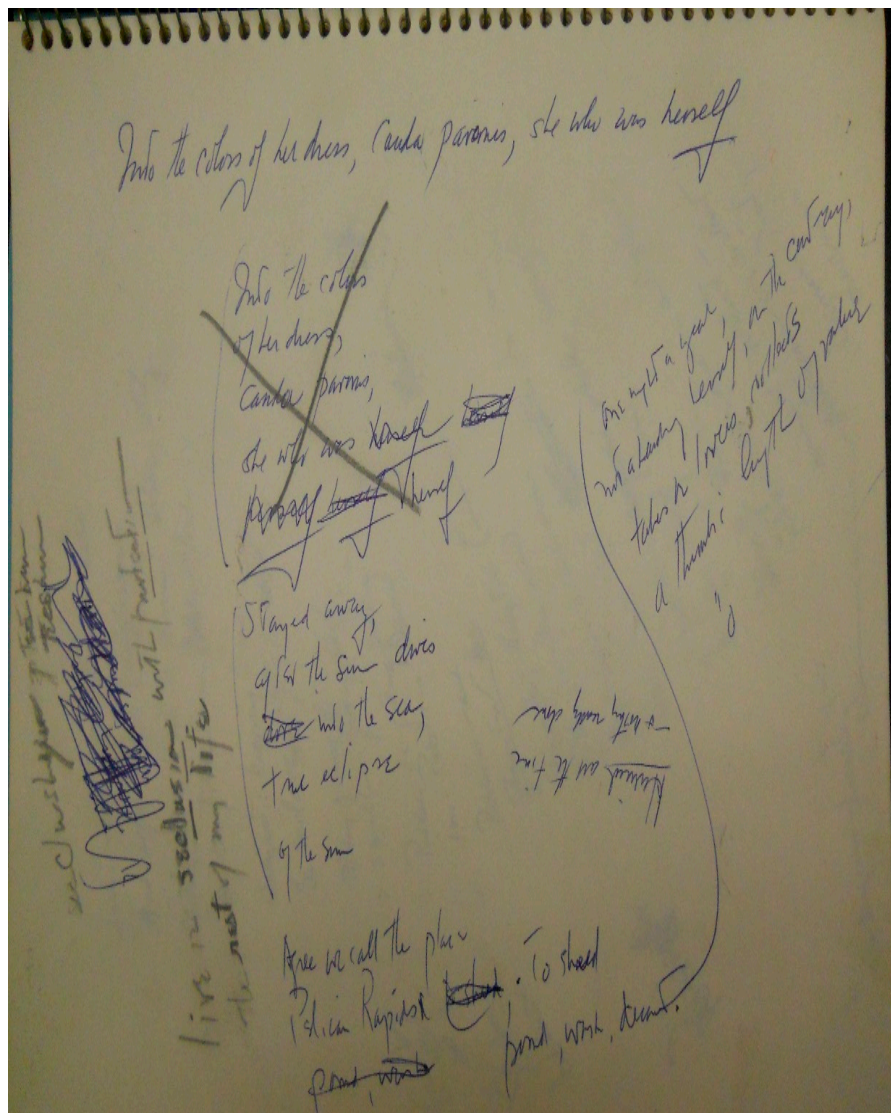 Into the colors of her dress, Cauda pavonis, she who was herself
Into the colors
of her dress,
Cauda pavonis,
she who was herself
herself herself herself
Stayed away,
after the sun dives
dove into the sea,
true eclipse
of the sun
Agree we call the place
Pelican Rapids. To shed
pond, wash
pond, wash, decant.
one night a year,
not a being herself, on the contrary,
takes a lover's, reflects
a thumb's length of value
all the time
nothing really done
with
live in seclusion
the rest of my life